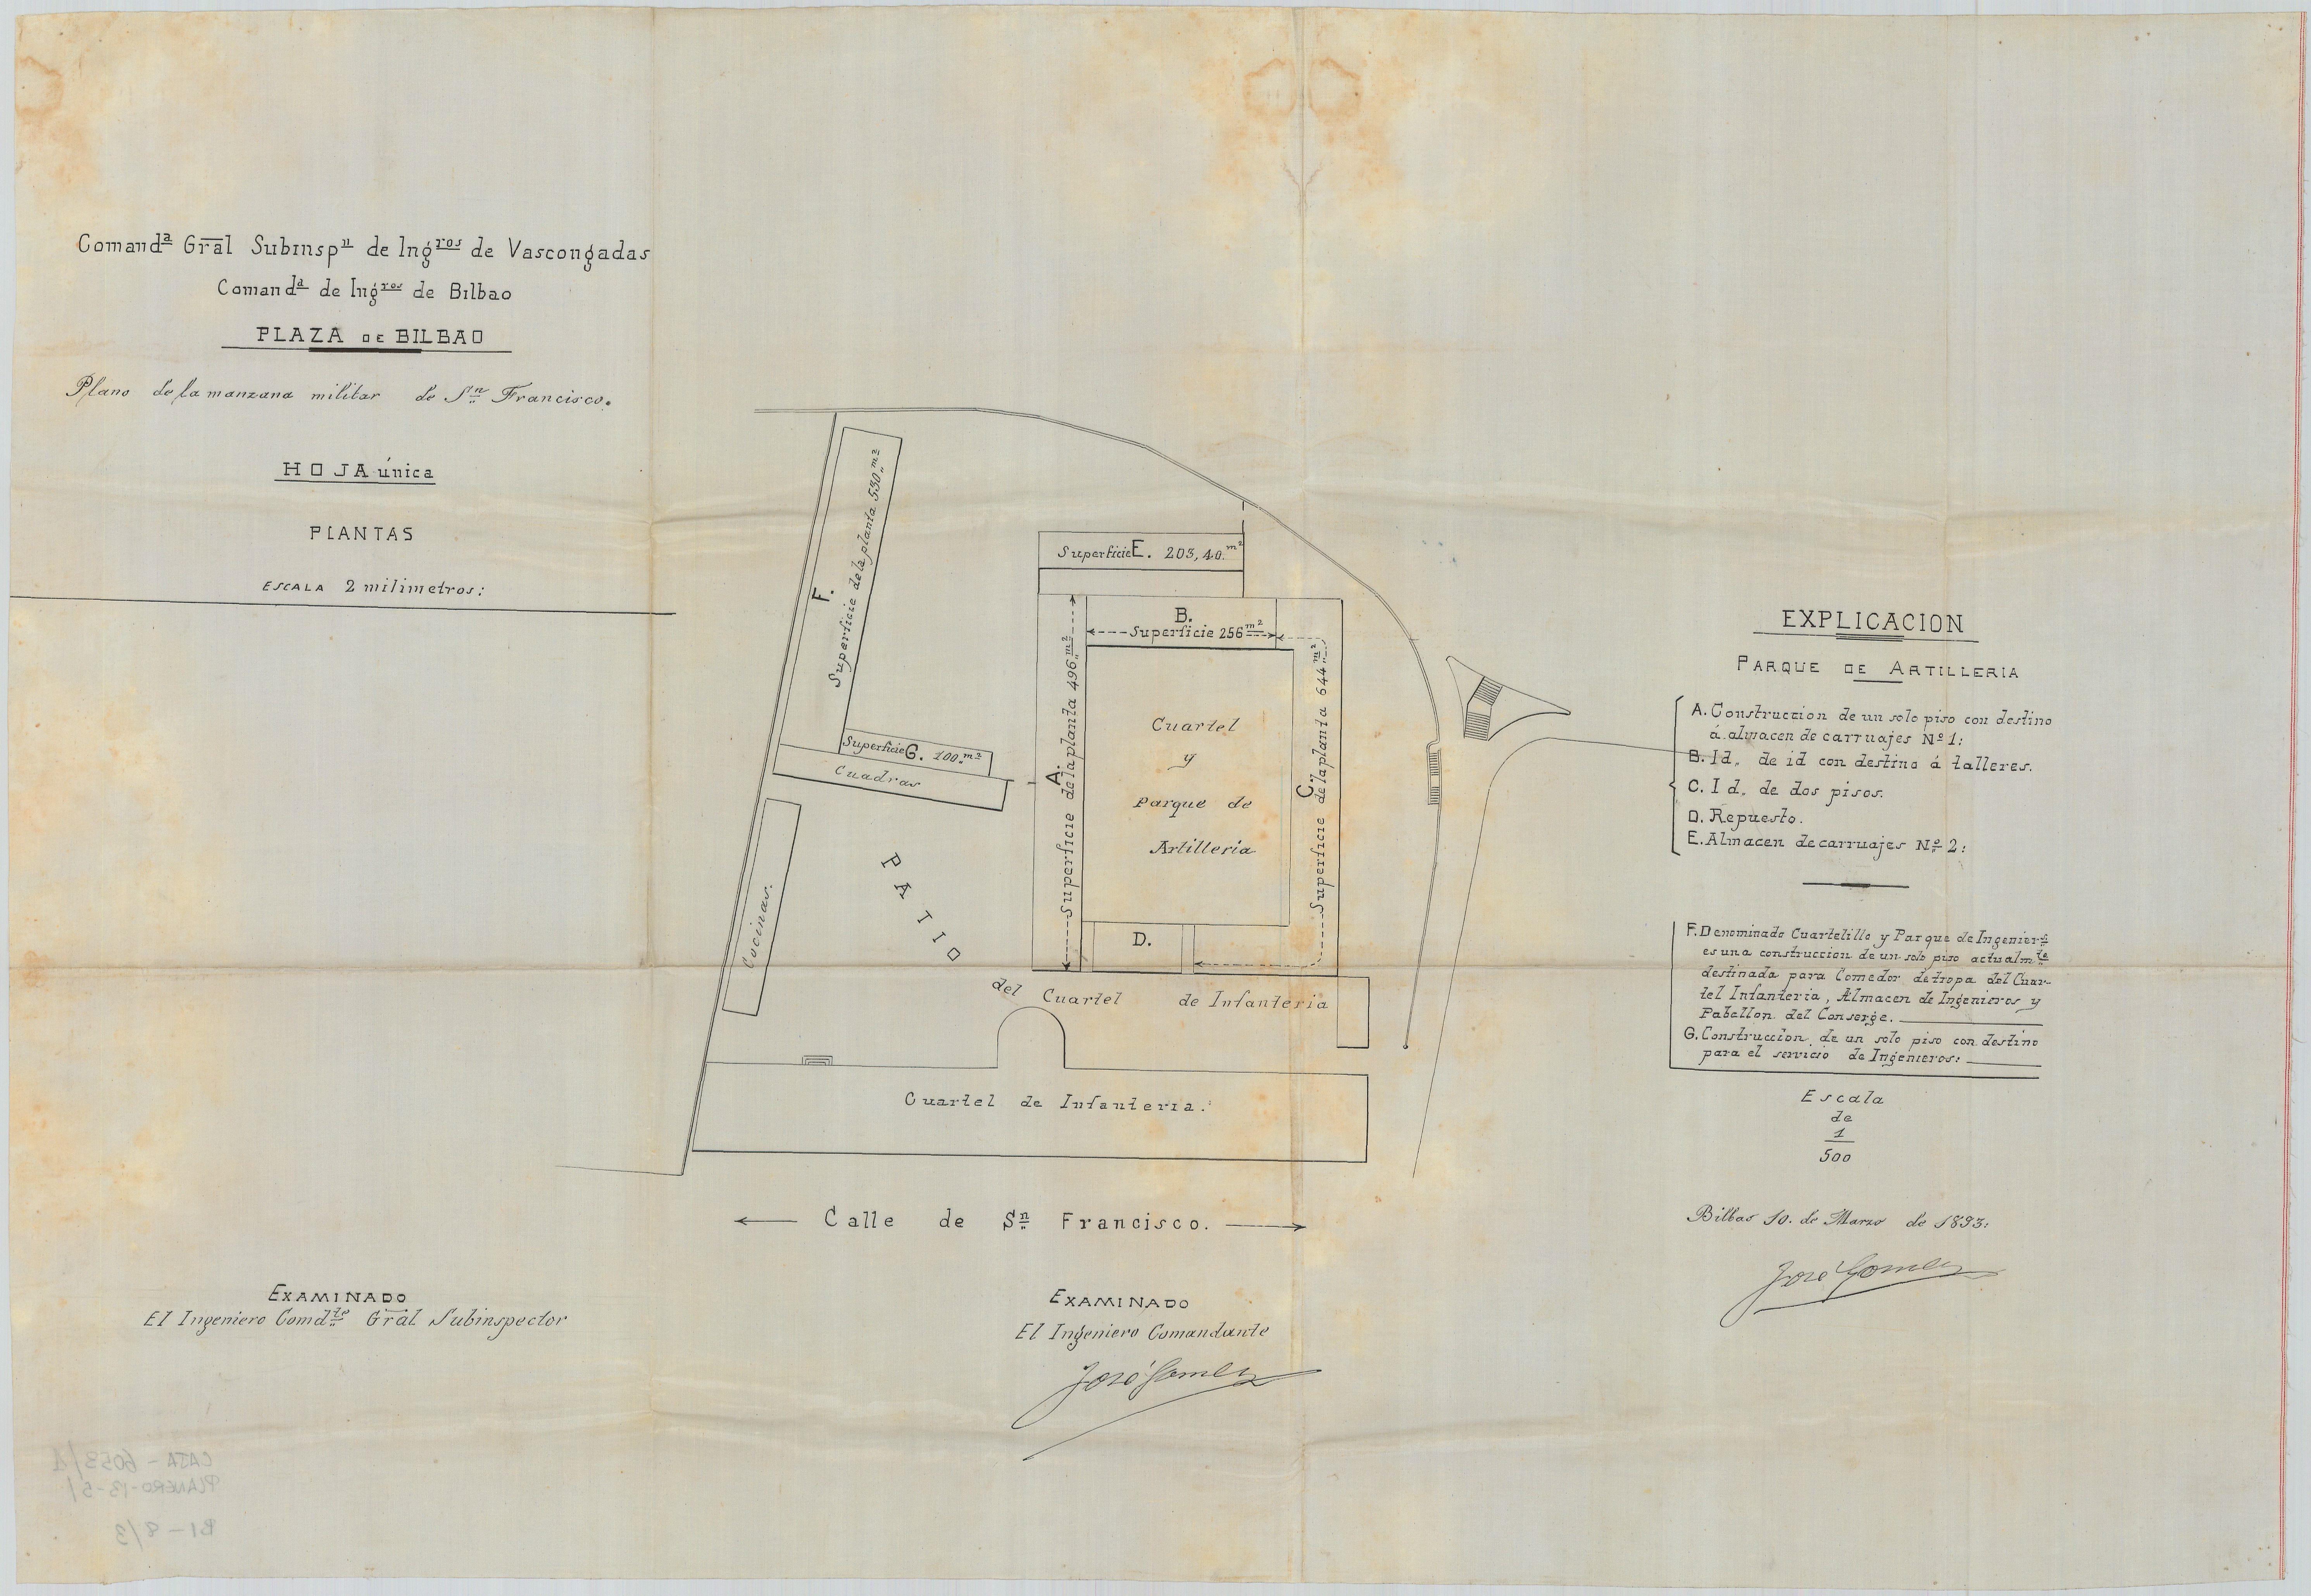 Comandª Gral Subinspⁿ de Ingʳᵒˢ de Vascongadas
Comandª de Ingʳᵒˢ de Bilbao
PLAZA DE BILBAO
Plano de la manzana militar de Sⁿ Francisco.
HOJA única
PLANTAS
ESCALA 2 milimetros:
F.
Superficie de la planta 530 m²
Superficie G. 100. m²
Cuadras
Cocinas.
Superficie E. 203,40. m²
B.
Superficie 256 m²
A.
Superficie de la planta 496 m²
C.
Superficie de la planta 644 m²
Cuartel
y
Parque de
Artilleria
D.
PATIO
del Cuartel de Infanteria
Cuartel de Infanteria.
Calle de Sⁿ Francisco.
EXPLICACION
PARQUE DE ARTILLERIA
A. Construccion de un solo piso con destino
á almacen de carruajes Nº 1:
B. Id. de id con destino á talleres.
C. Id. de dos pisos.
D. Repuesto.
E. Almacen de carruajes Nº 2:
F. Denominado Cuartelillo y Parque de Ingenierˢ
es una construccion de un solo piso actualmᵗᵉ
destinada para Comedor de tropa del Cuar-
tel Infanteria, Almacen de Ingenieros y
Pabellon del Conserge.
G. Construccion de un solo piso con destino
para el servicio de Ingenieros:
Escala
de
1
500
Bilbao 10. de Marzo de 1893:
José Gomez
EXAMINADO
El Ingeniero Comdᵗᵉ Gral Subinspector
EXAMINADO
El Ingeniero Comandante
José Gomez
CAJA - 6053/1
PLANERO-13-5/
BI-8/3